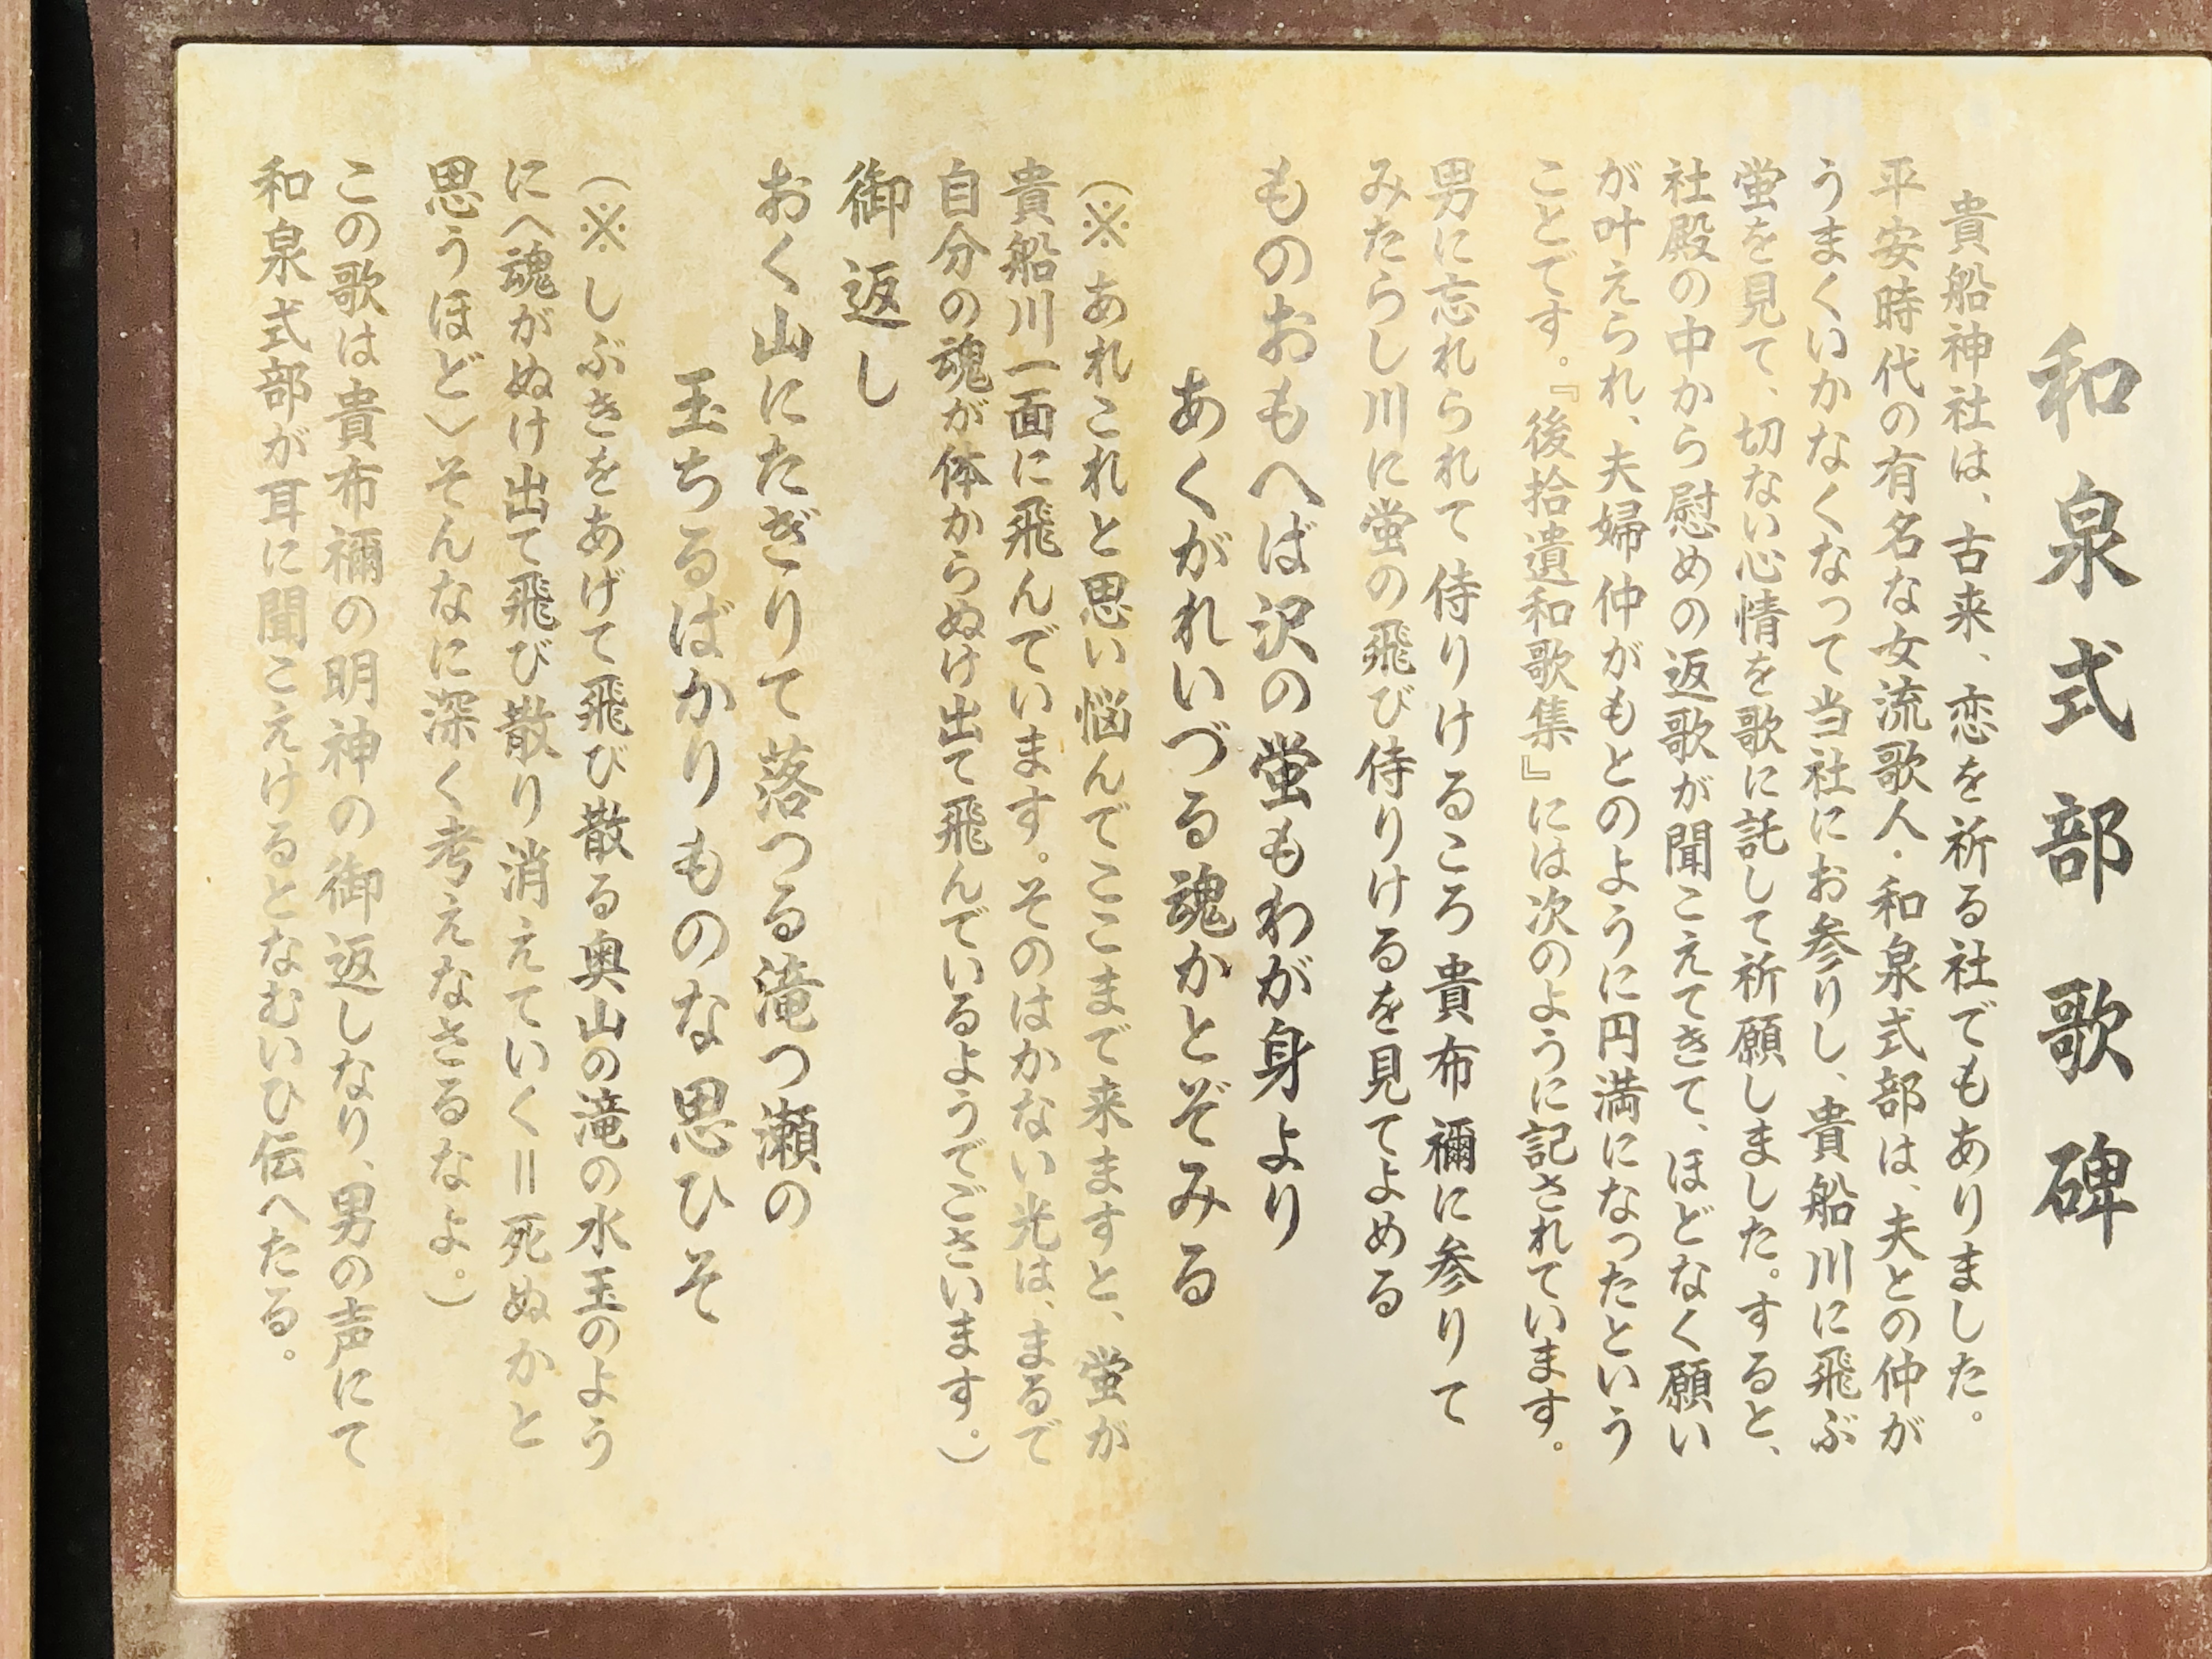 和泉式部歌碑
貴船神社は、古来、恋を祈る社でもありました。
平安時代の有名な女流歌人・和泉式部は、夫との仲が
うまくいかなくなって当社にお参りし、貴船川に飛ぶ
蛍を見て、切ない心情を歌に託して祈願しました。すると、
社殿の中から慰めの返歌が聞こえてきて、ほどなく願い
が叶えられ、夫婦仲がもとのように円満になったという
ことです。『後拾遺和歌集』には次のように記されています。
男に忘れられて侍りけるころ貴布禰に参りて
みたらし川に蛍の飛び侍りけるを見てよめる
ものおもへば沢の蛍もわが身より
あくがれいづる魂かとぞみる
(※あれこれと思い悩んでここまで来ますと、蛍が
貴船川一面に飛んでいます。そのはかない光は、まるで
自分の魂が体からぬけ出て飛んでいるようでございます。)
御返し
おく山にたぎりて落つる滝つ瀬の
玉ちるばかりものな思ひそ
(※しぶきをあげて飛び散る奥山の滝の水玉のよう
に〈魂がぬけ出て飛び散り消えていく＝死ぬかと
思うほど〉そんなに深く考えなさるなよ。)
この歌は貴布禰の明神の御返しなり、男の声にて
和泉式部が耳に聞こえけるとなむいひ伝へたる。